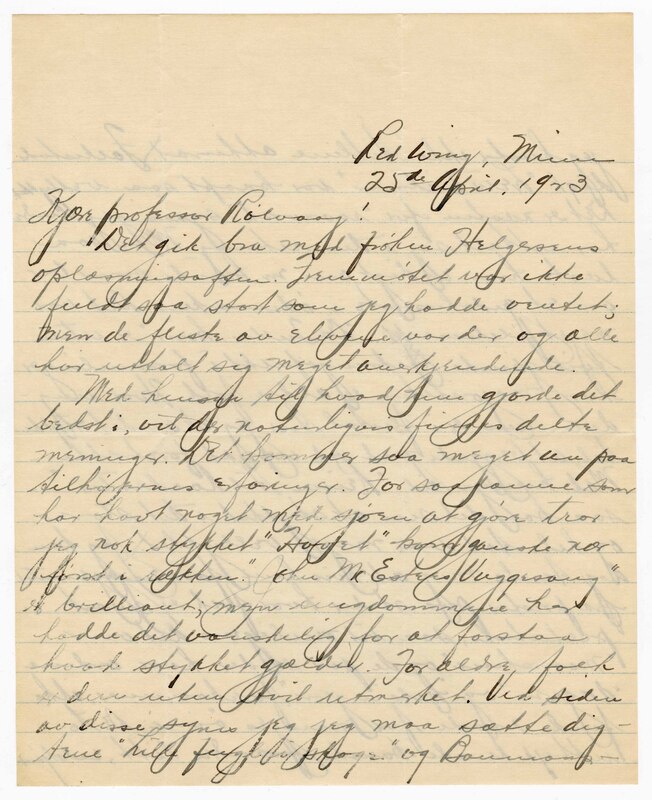 Red Wing, Minn
25de April, 1923
Kjære professor Rölvaag!
Det gik bra med frøken Helgersens
oplæsningsaften. Fremmøtet var ikke
fuldt saa stort som jeg hadde ventet;
men de fleste av elevene var der og alle
har uttalt sig meget anerkjendende.
Med hensyn til hvad hun gjorde det
bedst i, vil der naturligvis findes delte
meninger. Det kommer saa meget an paa
tilhørernes erfaringer. For saadanne som
har havt noget med sjøen at gjøre tror
jeg nok stykket "Havet" kom ganske nær
først i rækken. "John McEsters Vuggesang"
er brilliant; men ungdommene her
hadde det vanskelig for at forstaa
hvad stykket gjælder. For ældre folk
er den uten tvil utmerket. Ved siden
av disse synes jeg jeg maa sætte dig-
tene "Lille fugl i skoge" og